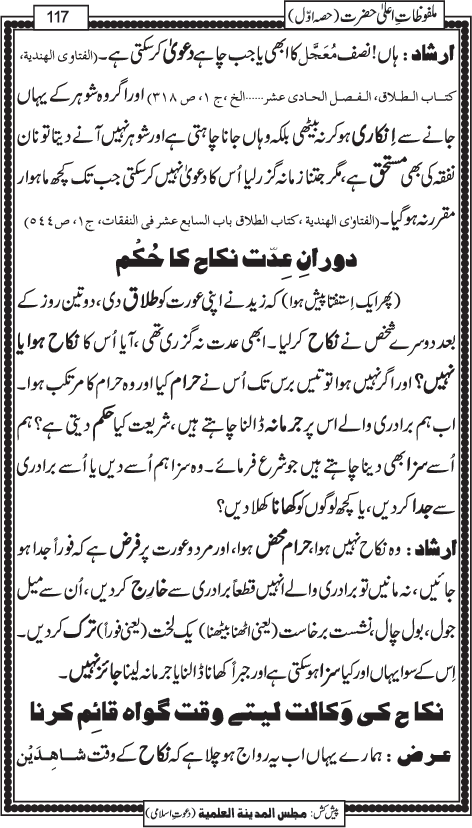 ملفوظاتِ اعلیٰ حضرت (حصہ اوّل)
117
ارشاد : ہاں! نصف مُعَجَّل کا ابھی یا جب چاہے دعویٰ کرسکتی ہے۔ (الفتاوی الھندیة،
کتاب الطلاق، الفصل الحادی عشر......الخ ،ج ۱، ص ۳۱۸) اور اگر وہ شوہر کے یہاں
جانے سے اِنکاری ہوکر نہ بیٹھی بلکہ وہاں جانا چاہتی ہے اور شوہر نہیں آنے دیتا تو نان
نفقہ کی بھی مستحق ہے، مگر جتنا زمانہ گزر لیا اُس کا دعویٰ نہیں کرسکتی جب تک کچھ ماہوار
مقرر نہ ہوگیا۔ (الفتاوی الھندیة ،کتاب الطلاق باب السابع عشر فی النفقات، ج۱، ص٥٤٤)
دورانِ عِدّت نکاح کا حُکْم
(پھر ایک اِستفتا پیش ہوا) کہ زید نے اپنی عورت کو طلاق دی، دو تین روز کے
بعد دوسرے شخص نے نکاح کرلیا۔ ابھی عدت نہ گزری تھی ،آیا اُس کا نکاح ہوا یا
نہیں؟ اور اگر نہیں ہوا تو تیس برس تک اُس نے حرام کیا اور وہ حرام کا مرتکب ہوا۔
اب ہم برادری والے اس پر جرمانہ ڈالنا چاہتے ہیں ،شریعت کیا حکم دیتی ہے؟ ہم
اُسے سزا بھی دینا چاہتے ہیں جو شرع فرمائے۔ وہ سزا ہم اُسے دیں یا اُسے برادری
سے جدا کردیں، یا کچھ لوگوں کو کھانا کھلا دیں؟
ارشاد : وہ نکاح نہیں ہوا، حرامِ محض ہوا، اور مرد و عورت پر فرض ہے کہ فوراً جدا ہو
جائیں ، نہ مانیں تو برادری والے انہیں قطعاً برادری سے خارِج کردیں ، اُن سے میل
جول ، بول چال ، نشست برخاست (یعنی اٹھنا بیٹھنا) یک لخت (یعنی فوراً) ترک کردیں۔
اِس کے سوا یہاں اور کیا سزا ہوسکتی ہے اور جبراً کھانا ڈالنا یا جرمانہ لینا جائز نہیں۔
نکاح کی وَکالت لیتے وقت گواہ قائِم کرنا
عرض : ہمارے یہاں اب یہ رواج ہوچلا ہے کہ نکاح کے وقت شاھِدَیْن
پیش کش: مجلس المدینة العلمیة (دعوتِ اسلامی)